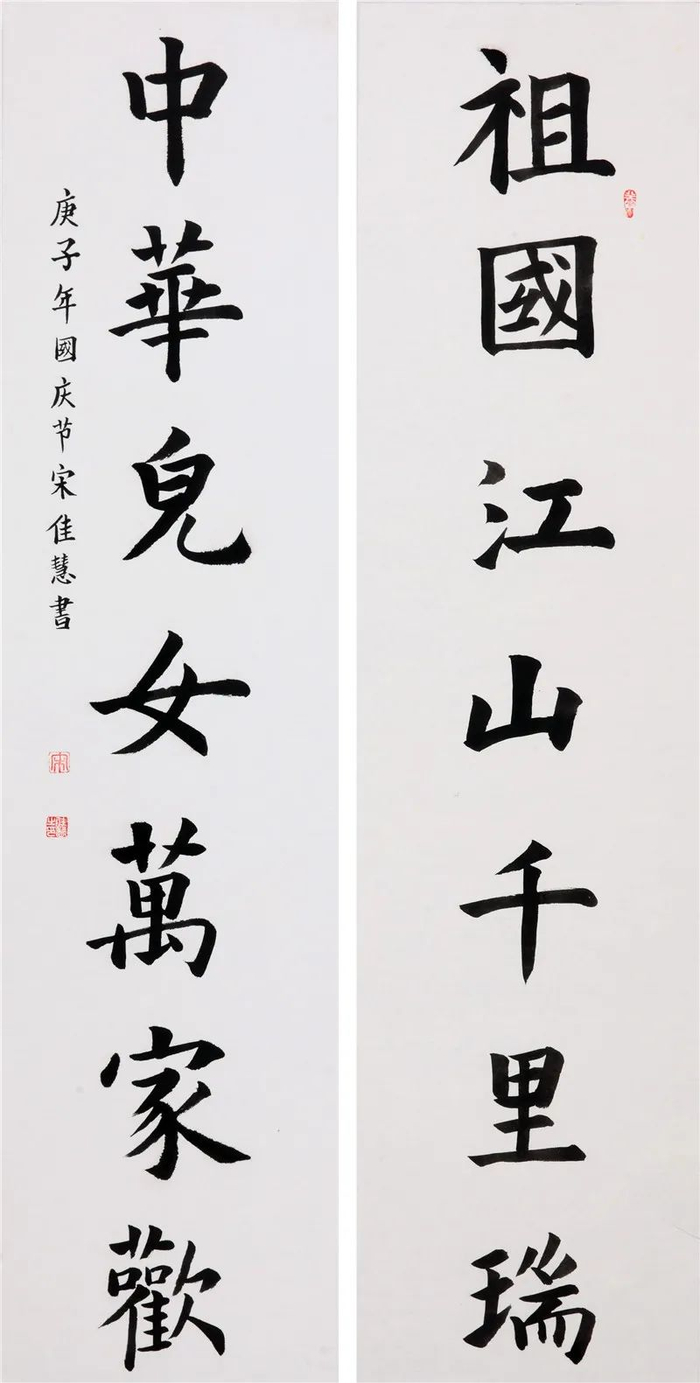 祖國江山千里瑞
中華兒女萬家歡
庚子年國庆节宋佳慧書